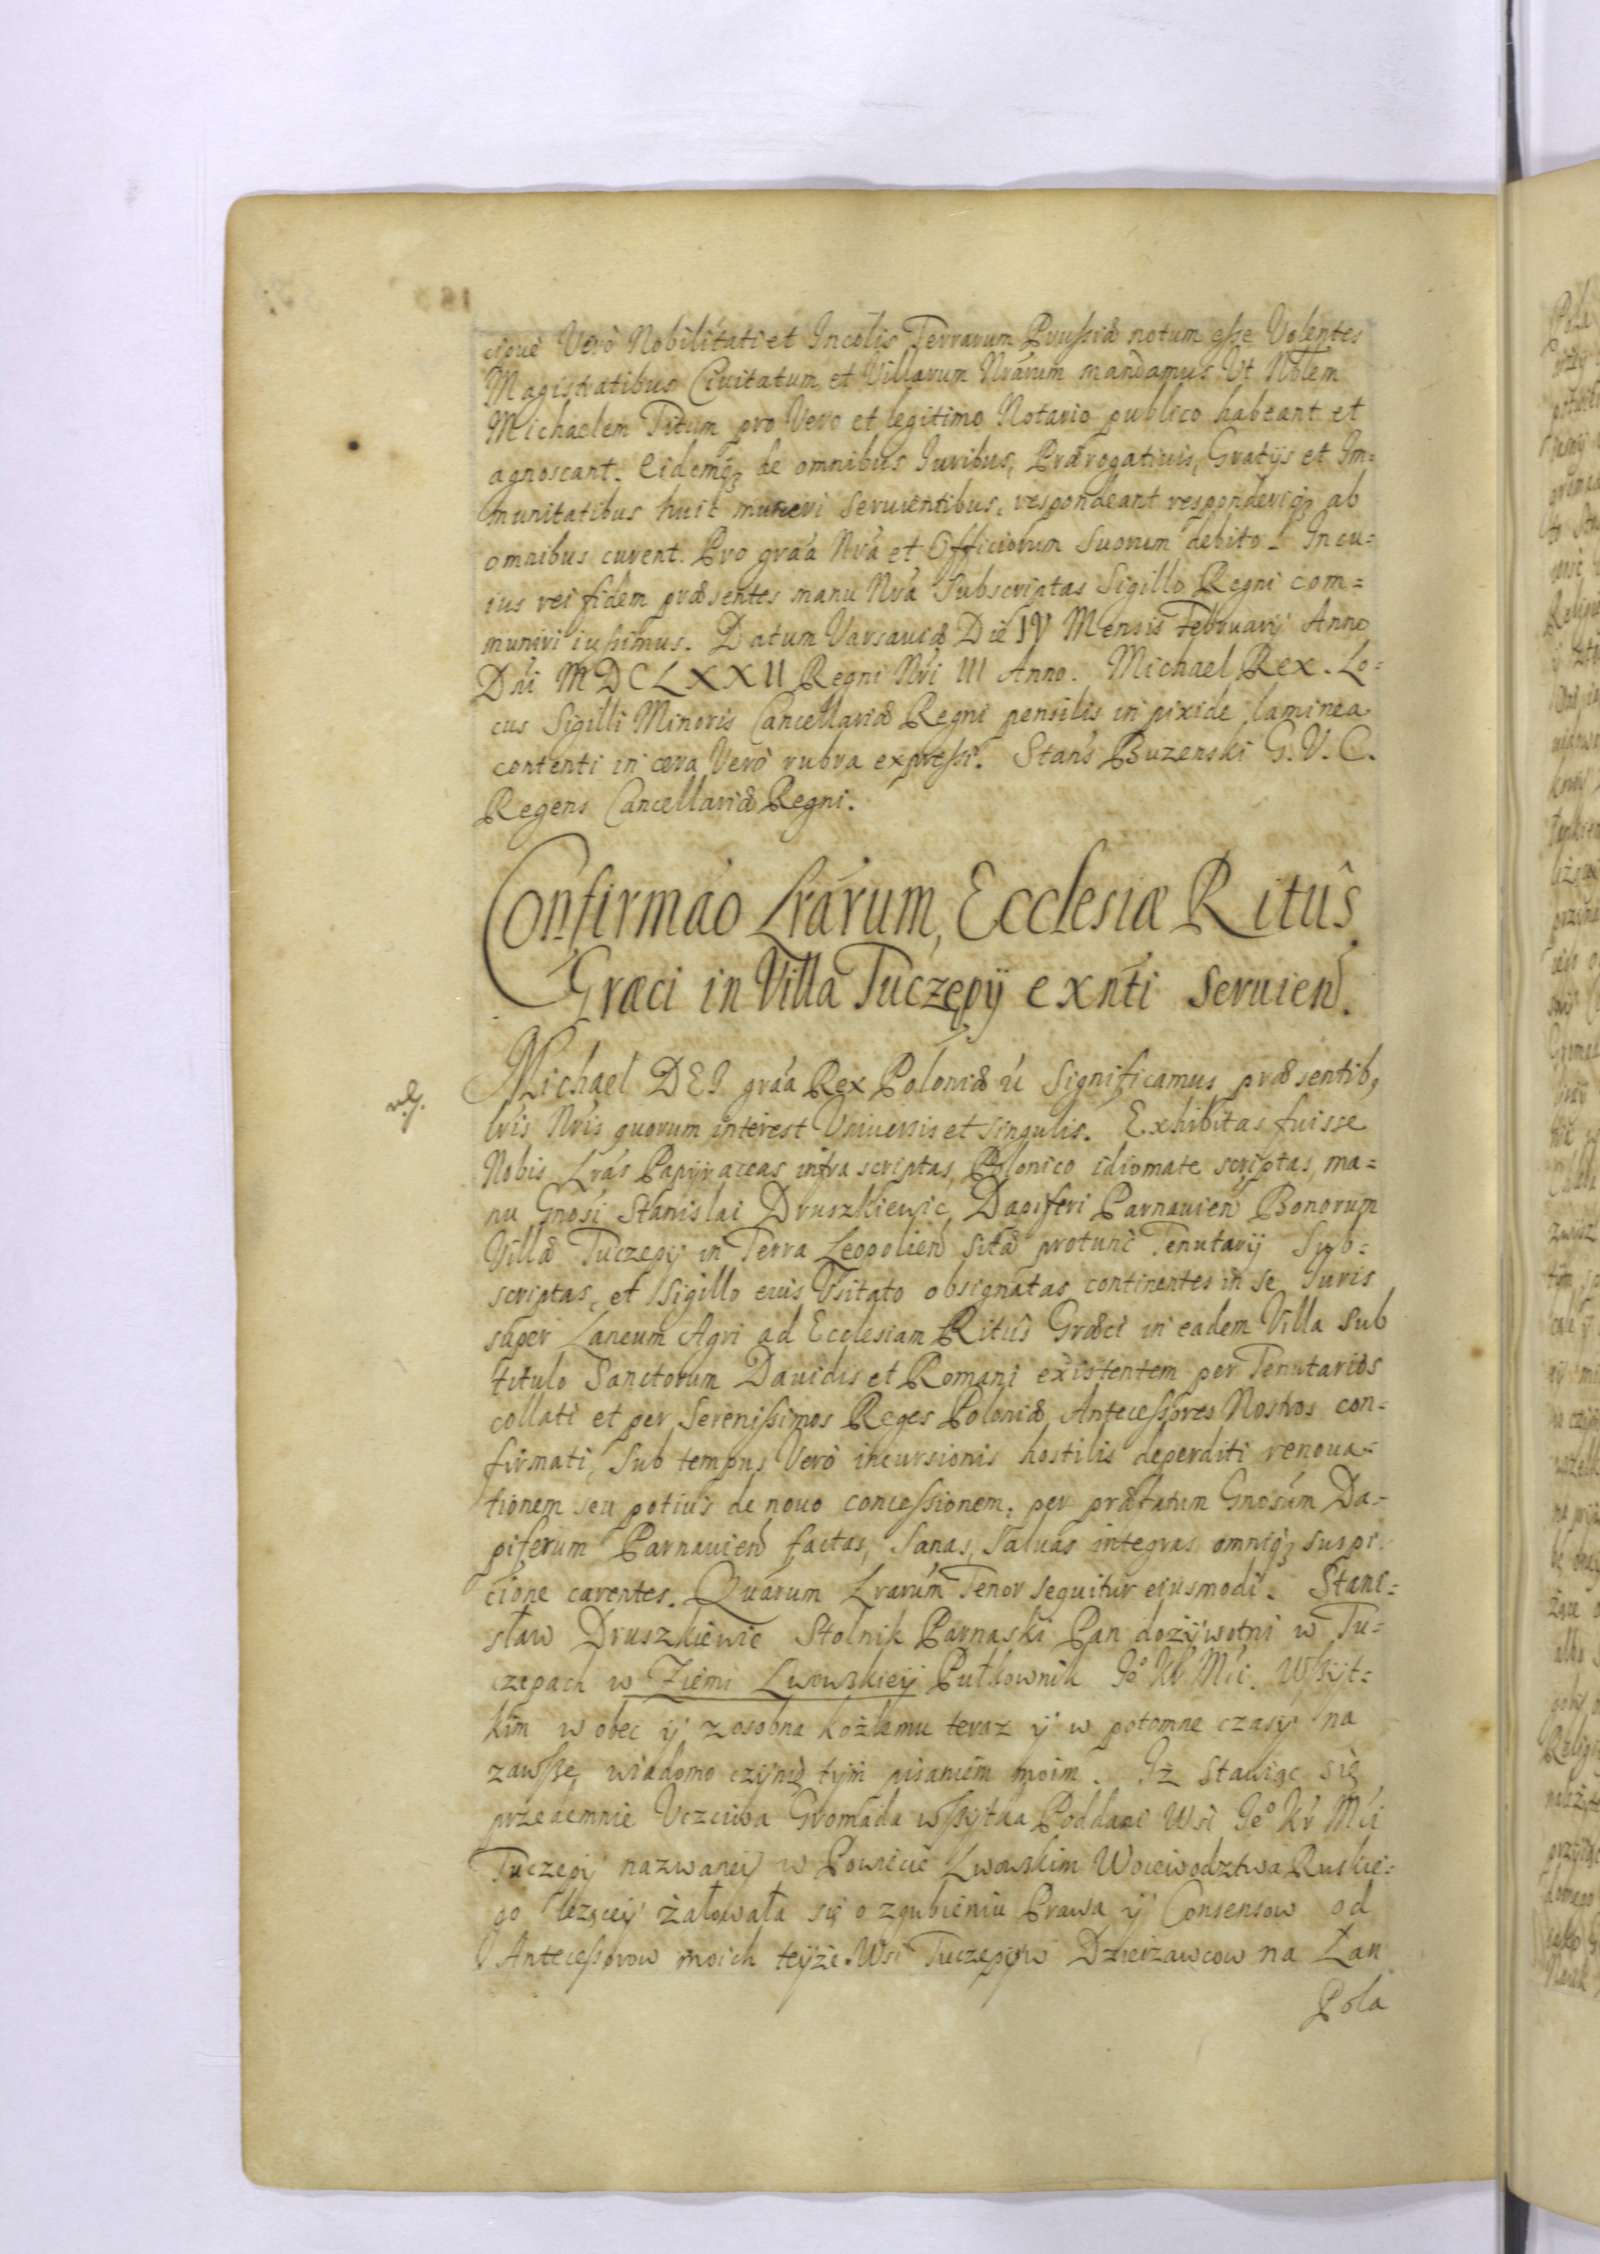 cipuè Verò Nobilitati et Incolis Terrarum Prussiæ notum esse Volentes
Magistratibus Ciuitatum et Villarum Nrárum mandamus Vt Nblem
Michaelem Titum pro Vero et legitimo Notario publico habeant et
agnoscant. Eidemq; de omnibus Iuribus, Prærogatiuis, Gratijs et Im=
munitatibus huic muneri seruientibus, respondeant responderiq; ab
omnibus curent. Pro gráa Nrá et Officiorum Suorum debito. In cu=
ius rei fidem præsentes manu Nrá Subscriptas Sigillo Regni com=
muniri iussimus. Datum Varsauiæ Die IV Mensis Februarij Anno
Dni MDCLXXII Regni Nri III Anno. Michael Rex. Lo=
cus Sigilli Minoris Cancellariæ Regni pensilis in pixide laminea
contenti in cera Verò rubra expressi. Stans Buzenski G.V.C.
Regens Cancellariæ Regni.
Confirmáo Lrárum, Ecclesiæ Ritûs
Græci in Villa Tuczępÿ exnti seruien.
Michael DEI gráa Rex Poloniæ ú Significamus præsentib,
lris Nris quorum interest Vniuersis et singulis. Exhibitas fuisse
Nobis Lrás Papyraceas infra scriptas, Polonico idiomate scriptas, ma=
nu Gnosi Stanislai Druszkiewic, Dapiferi Parnauien Bonorum
Villæ Tuczępÿ in Terra Leopolien sitæ protunc Tenutarij Sub=
scriptas, et Sigillo eius Vsitato obsignatas continentes in se Iuris
super Laneum Agri ad Ecclesiam Ritûs Græci in eadem Villa sub
titulo Sanctorum Dauidis et Romani existentem per Tenutarios
collati et per Serenissimos Reges Poloniæ Antecessores Nostros con=
firmati, Sub tempus Verò incursionis hostilis deperditi renoua=
tionem seu potiùs de nouo concessionem, per præfatum Gnosum Da=
piferum Parnauien factas, Sanas, Saluas integras omniq; suspi
cione carentes. Quarum Lrarum Tenor sequitur eiusmodi. Stani=
sław Druszkiewic Stolnik Parnaski Pan dożÿwotni w Tu=
czępach w Ziemi Lwowskieÿ Pułkownik Jº Kr Mći. Wszÿt=
kim wobec ÿ zosobna każdemu teraz ÿ w potomne czasÿ na
zawsze wiadomo czÿnię tÿm pisaniem moim. Iż Stawiąc się
przedemnie Vczciwa Gromada wszÿtka Poddani Wsi Jeº Kr Mći
Tuczępÿ nazwaneÿ w Powiecie Lwowskim Woiewodztwa Ruskie=
go leżąceÿ żałowała się o zgubieniu Prawa ÿ Consensow od
Antecessorow moich teÿże Wsi Tuczępÿ Dzierżawcow na Łan
Pola